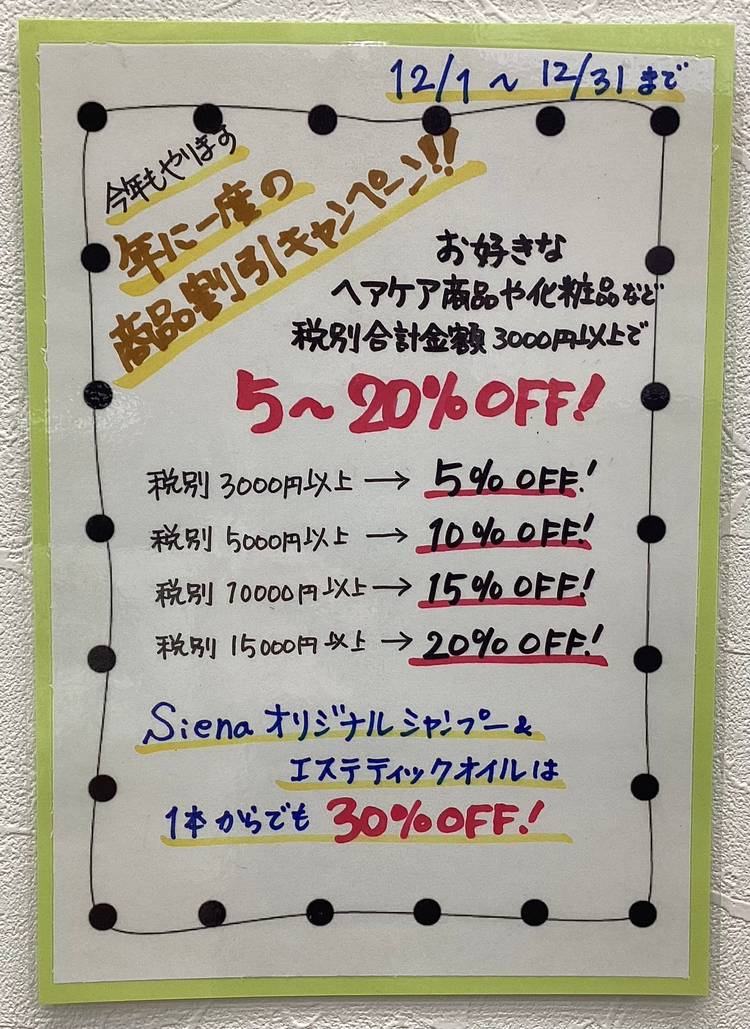 12/1～12/31まで
今年もやります
年に一度の
商品割引キャンペーン!!
お好きな
ヘアケア商品や化粧品など
税別合計金額3000円以上で
5～20%OFF!
税別3000円以上→5%OFF!
税別5000円以上→10%OFF!
税別10000円以上→15%OFF!
税別15000円以上→20%OFF!
Sienaオリジナルシャンプー&
エステティックオイルは
1本からでも30%OFF!